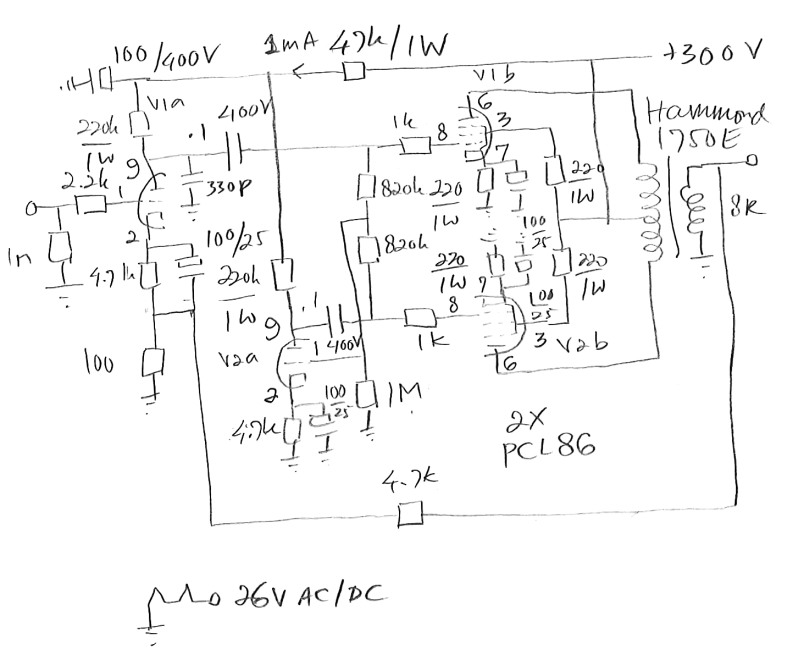 100/400V
1mA 47k/1W
+300V
V1b
V1a
400V
220k
1W
.1
1k
8
6
3
7
Hammond
1750E
9
2.2k
1
330p
820k
220
1W
220
1W
8R
2
100/25
100
25
1n
4.7k
220k
1W
820k
220
1W
7
100
25
220
1W
9
.1
400V
8
1k
3
V2b
6
100
V2a
1
2
100
25
1M
4.7k
2X
PCL86
4.7k
26V AC/DC